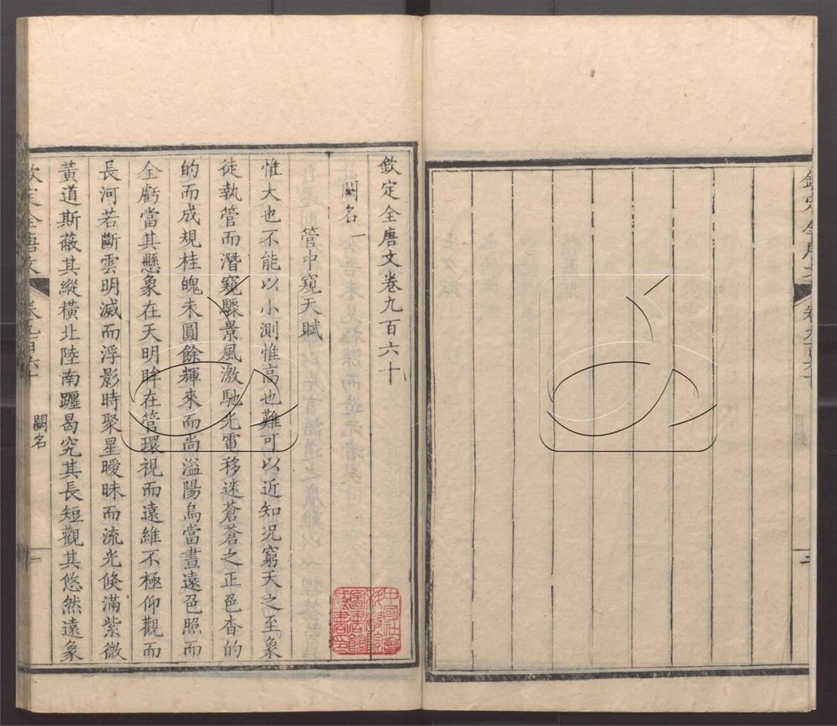 欽定全唐文卷九百六十
闕名一
管中窺天賦
惟大也不能以小測惟高也難可以近知況窮天之至象
徒執管而潛窺驟景風激馳光雷移迷蒼蒼之正色杳的
的而成規桂魄未圓餘輝來而尚溢陽烏當晝遠色照而
全虧當其懸象在天明眸在管環視而遠維不極仰觀而
長河若斷雲明滅而浮影時聚星曖昧而流光倏滿紫微
黃道斯蔽其縱橫北陸南躔曷究其長短觀其悠然遠象
欽定全唐文
卷九百六十
闕名
一